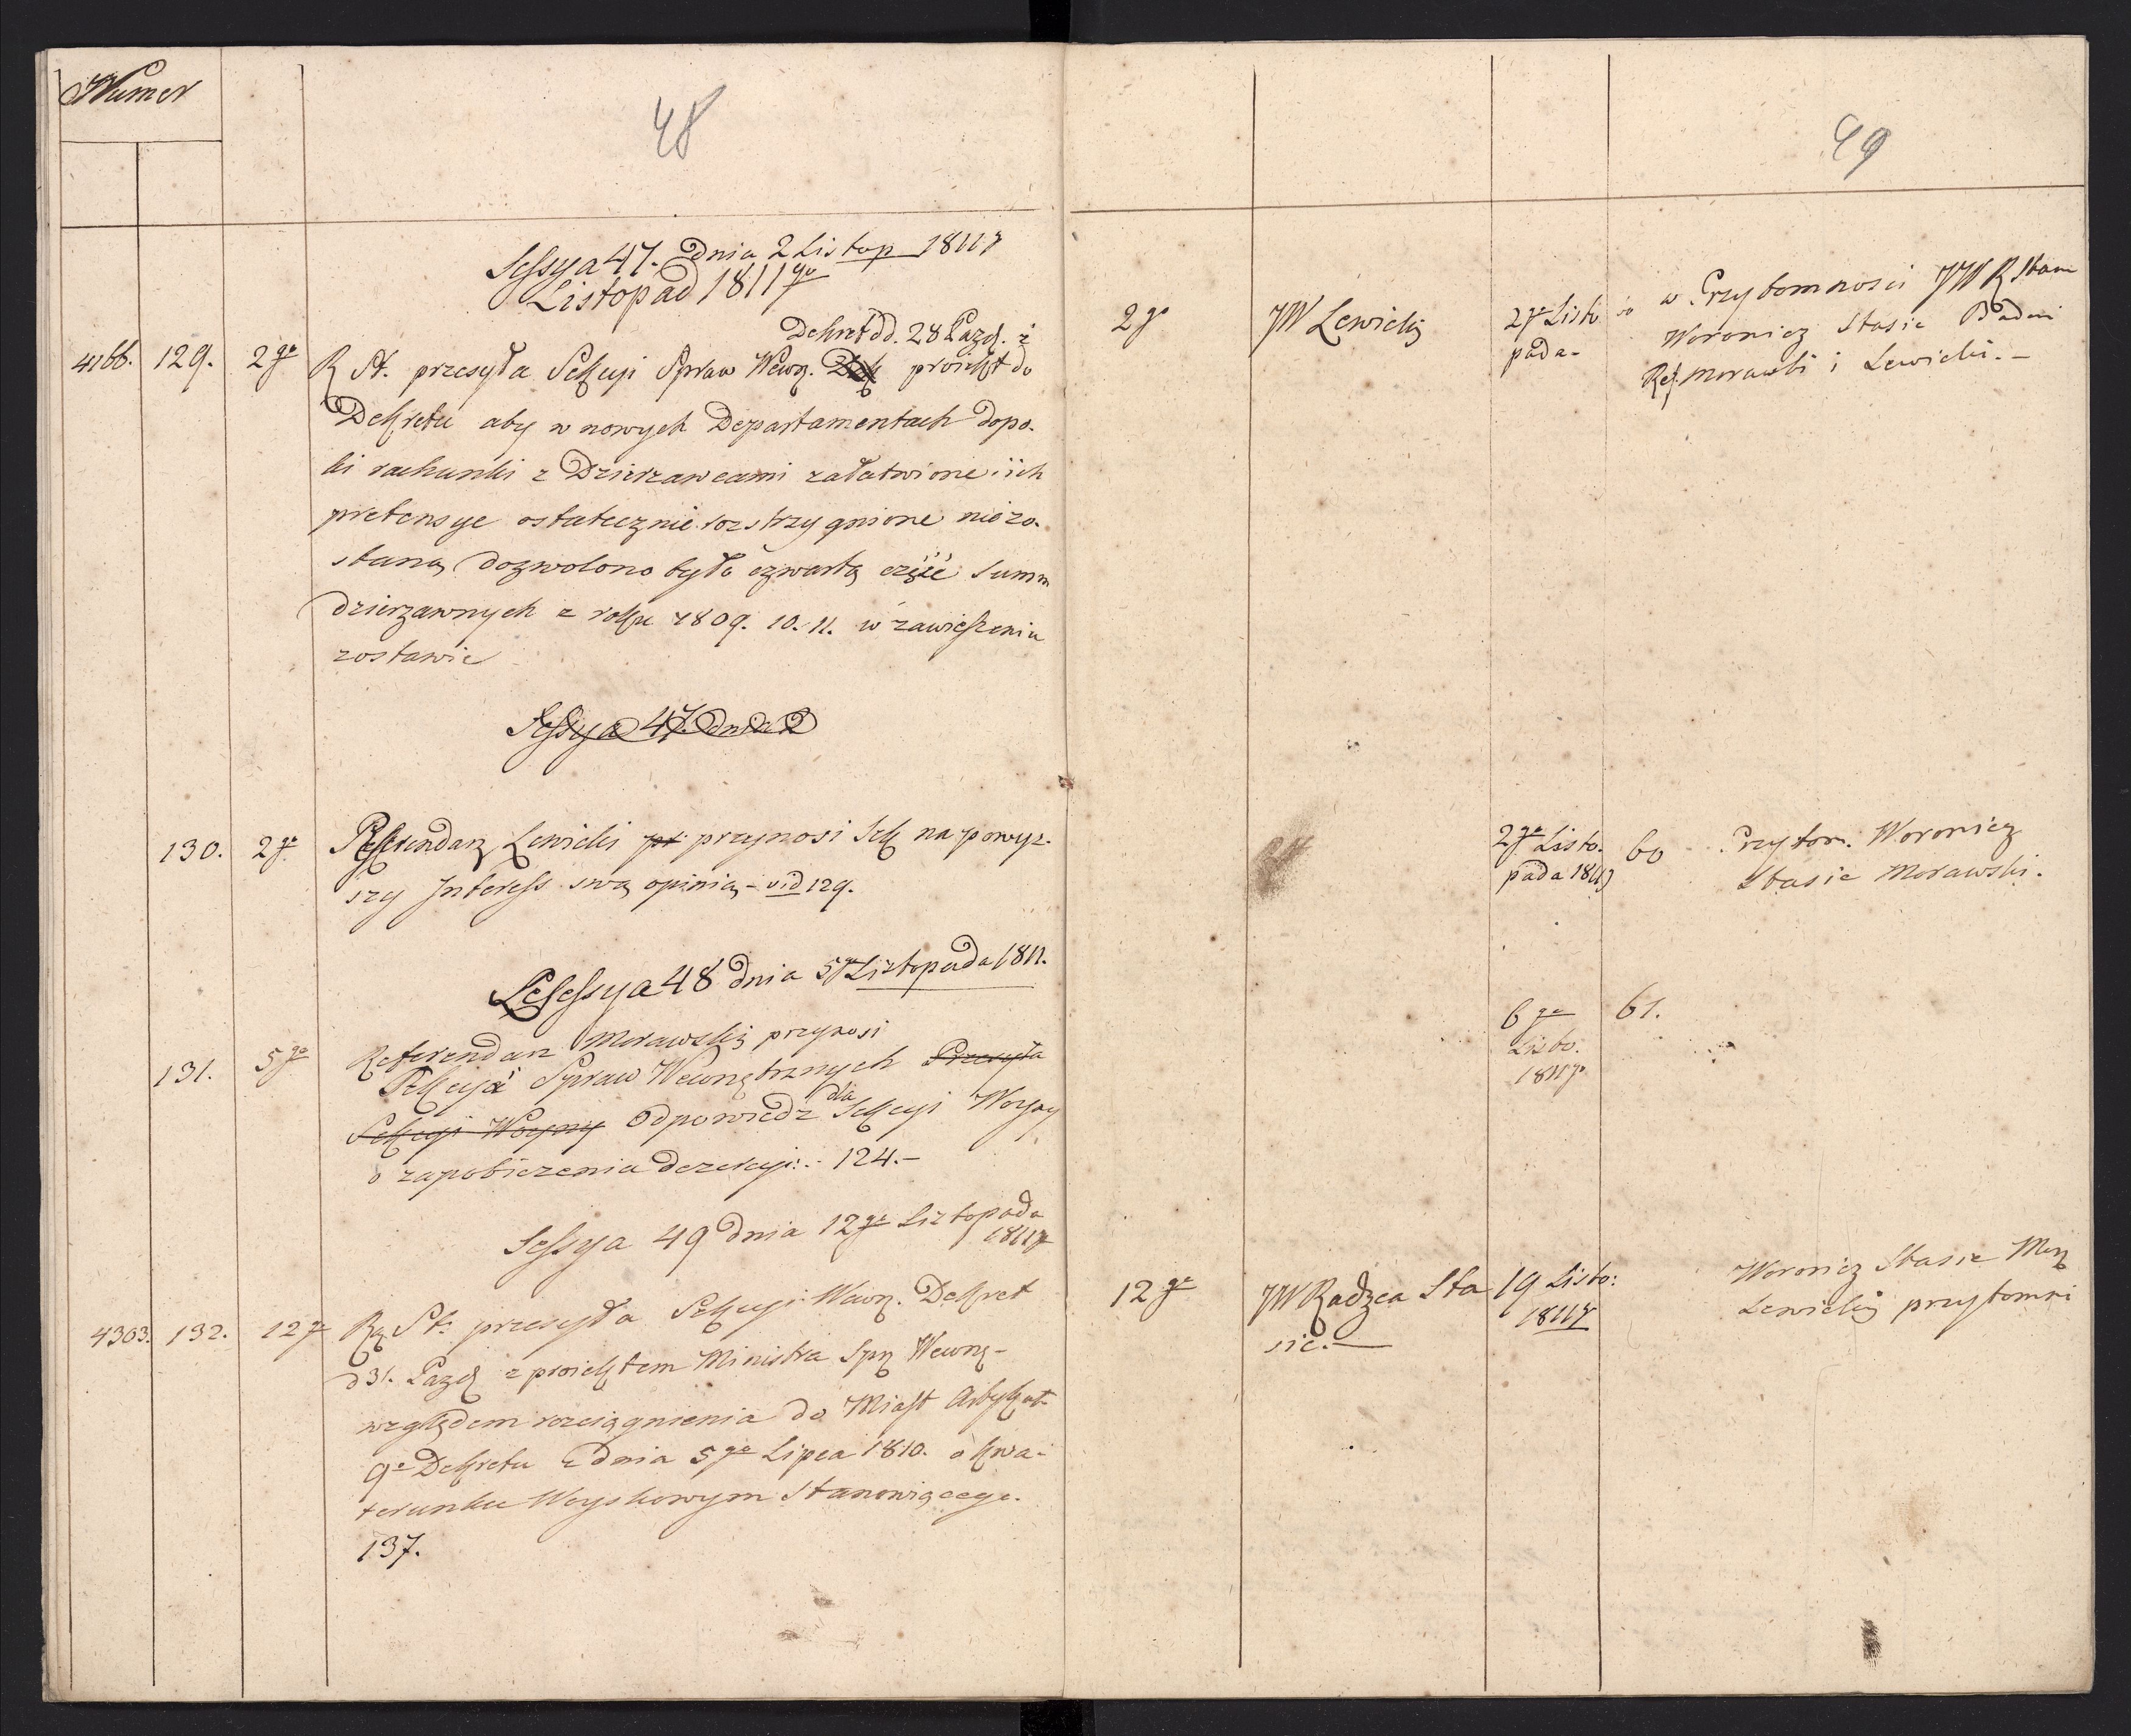 Numer
48
Sessya 47. Dnia 2 Listop 1811 r
Listopad 1811 go
Dekret dd. 28 Pazd. z
4166. 129. 2go R St. przesyła Sekcyi Spraw Wewn. proiekt do
Dekretu aby w nowych Departamentach dopo-
ki rachunki z Dzierzawcami załatwione i ich
pretensye ostatecznie rozstrzygnione niezo-
staną, dozwolono było czwartą część Summ
dzierzawnych z roku 1809. 10. 11. w zawieszeniu
zostawic
Sessya 47. Dnia 2
130. 2go Referendarz Lewicki pr przynosi Sek na powyz-
szy Interess swą opinią - vid 129.
Sessya 48 dnia 5go Listopada 1811.
Referendarz Morawski przynosi
131. 5go Sekcyja Spraw Wewnętrznych Przesyła
Sekcyi Woyny Odpowiedz dla Sekcyi Woyny
o zapobiezenia dezercyi: - 124. -
Sessya 49 dnia 12go Listopada
1811 r
4303. 132. 12go Ra St: przesyła Sekcyi Wewn. Dekret
d 31. Pazd z proiektem Ministra Spr Wewnę-
względem rozciągnienia do Miast Artykuł
9o Dekretu z dnia 5go Lipca 1810. o kwa-
terunku Woyskowym Stanowiącego.
137.
49
2go JW Lewicki 2go Listo
pada-
w Przytomnosci JW R Stanu
Woronicz Stasic Badeni
Ref. Morawski i Lewicki. -
2go Listo.
pada 1811
60 Przytom. Woronicz
Stasic Morawski.
6go
Listo.
1811 r
61.
12go JW Radzca Sta
sic. -
19 Listo:
1811 r
Woronicz Stasic
Lewicki przytomni